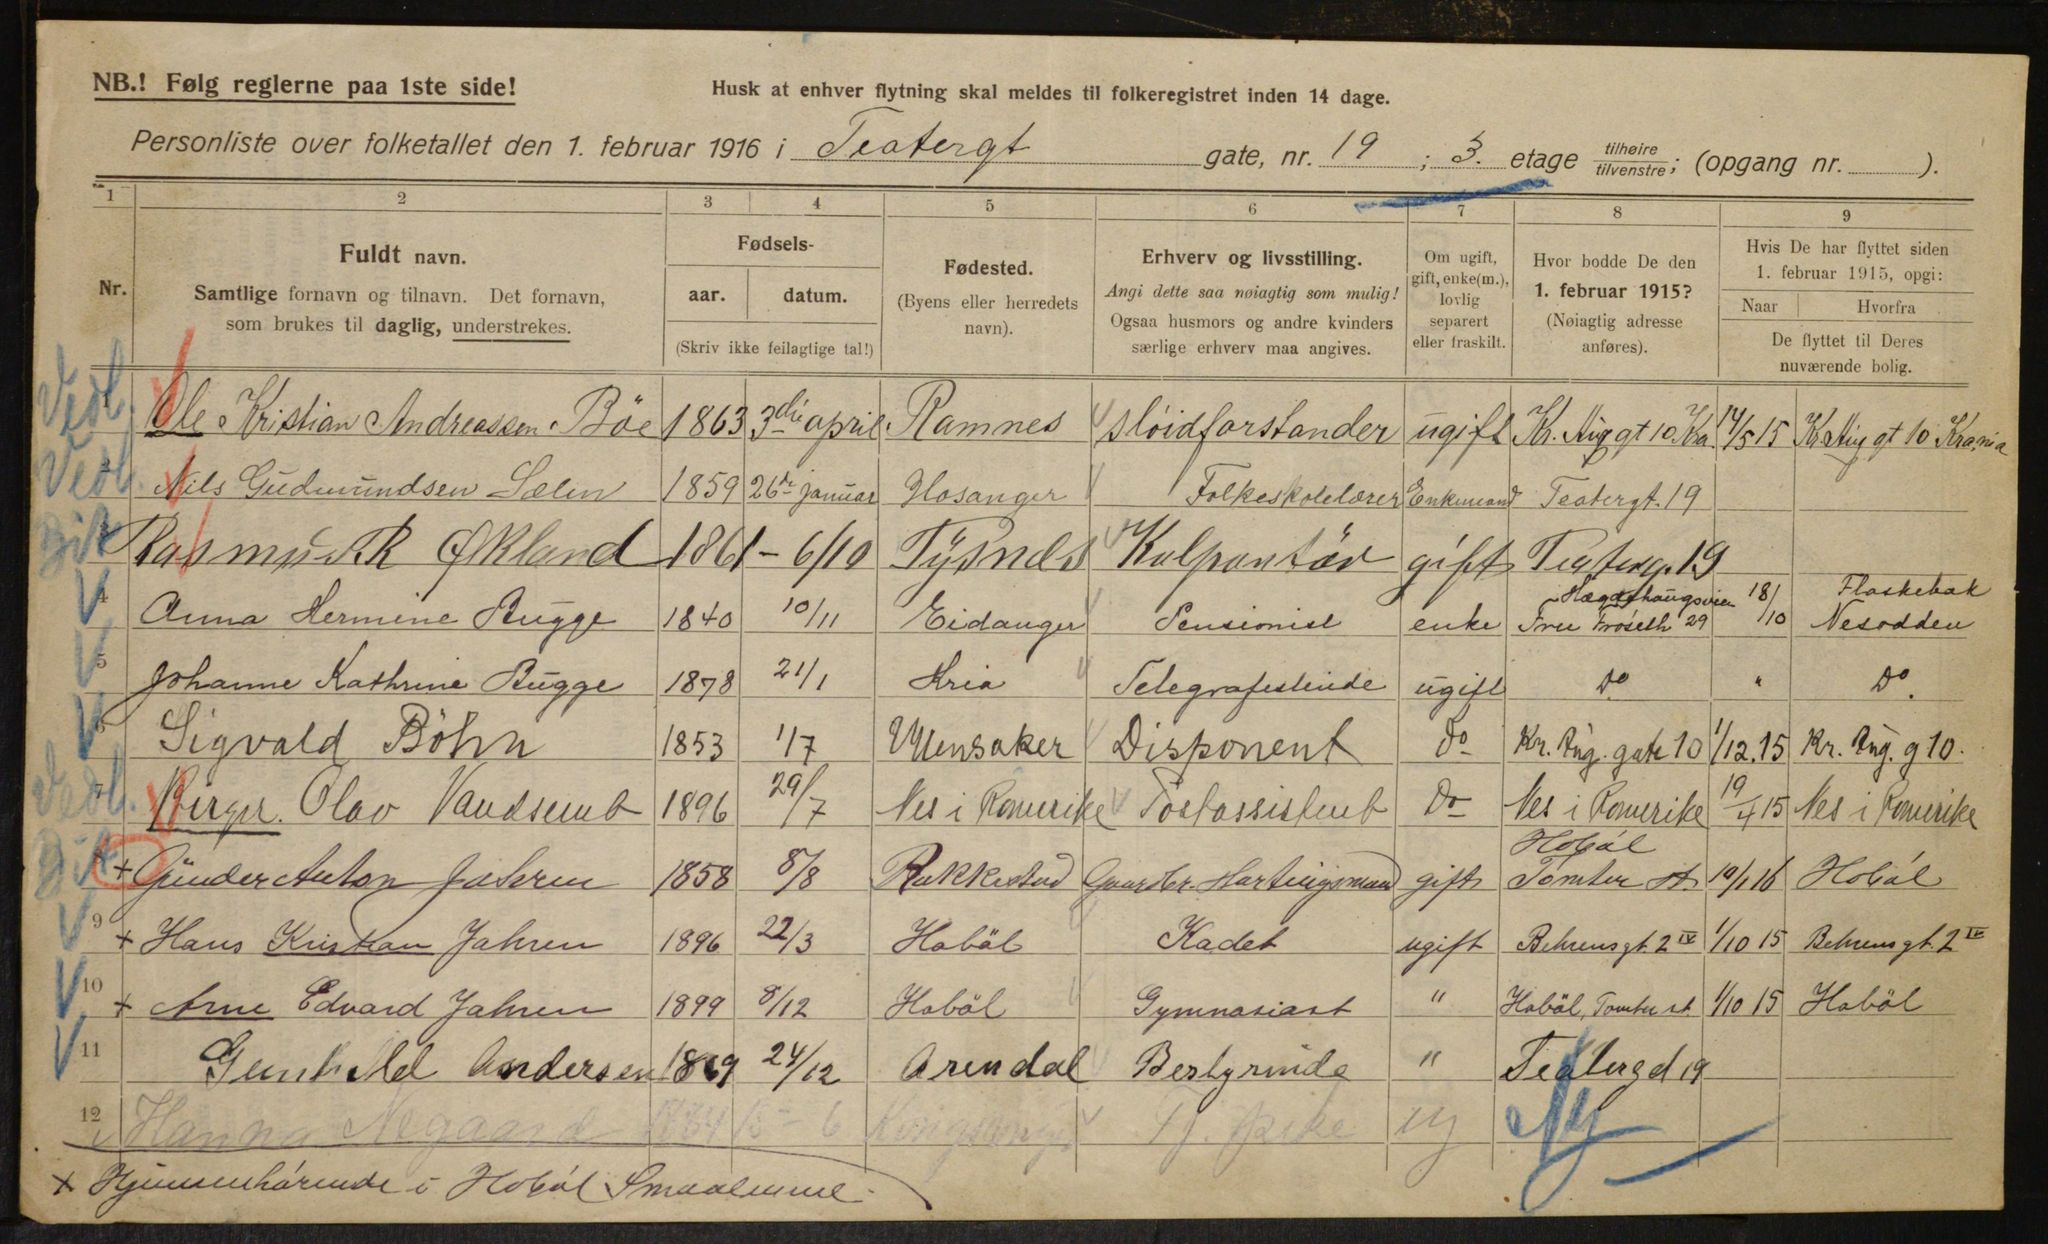 NB.! Følg reglerne paa 1ste side!
Husk at enhver flytning skal meldes til folkeregistret inden 14 dage.
Personliste over folketallet den 1. februar 1916 i Teatergt gate, nr. 19 ; 3. etage tilhøire tilvenstre; (opgang nr. ).
1 2 3 4 5 6 7 8 9
Nr.
Fuldt navn.
Samtlige fornavn og tilnavn. Det fornavn,
som brukes til daglig, understrekes.
Fødsels-
aar. datum.
(Skriv ikke feilagtige tal!)
Fødested.
(Byens eller herredets
navn).
Erhverv og livsstilling.
Angi dette saa nøiagtig som mulig!
Ogsaa husmors og andre kvinders
særlige erhverv maa angives.
Om ugift,
gift, enke(m.),
lovlig
separert
eller fraskilt.
Hvor bodde De den
1. februar 1915?
(Nøiagtig adresse
anføres).
Hvis De har flyttet siden
1. februar 1915, opgi:
Naar Hvorfra
De flyttet til Deres
nuværende bolig.
Vedb. 1 Ole Kristian Andreassen Böe 1863 3die april Ramnes slöidforstander ugift Kr. Aug gt 10. Kra. 14/5 15 Kr Aug gt 10 Krania
Vedb. 2 Nils Gudmundsen Sælen 1859 26de januar Hosanger Folkeskolelærer Enkemand Teatergt. 19
3 Rasmus R Økland 1861 - 6/10 Tysnes Kolportör gift Teaterg. 19
4 Anna Hermine Bugge 1840 10/11 Eidanger Pensionist enke Hægdehaugsveien Fru Fröseth 29 18/10 Flaskebæk Nesodden
5 Johanne Kathrine Bugge 1878 21/1 Kria Telegrafistinde ugift Do " Do.
6 Sigvald Böhn 1853 1/7 Ullensaker Disponent Do Kr. Aug. gate 10 1/12.15 Kr. Aug. g 10.
Vedb. 7 Birger Olav Vandsemb 1896 29/7 Nes i Romerike Postassistent Do Nes i Romerike 19/4 15 Nes i Romerike
+ Gunder Anton Jahren 1858 8/8 Rakkestad Gaardbr. Hærtingsmand gift Hobøl Tomter st 10/1 16 Hobøl
9 + Hans Kristian Jahren 1896 22/3 Haböl Kadet ugift Behrensgt. 2 IV 1/10 15 Behrensgt. 2 IV
10 + Arne Edvard Jahren 1899 8/12 Haböl Gymnasiast " Haböl, Tomter st. 1/10 15 Haböl
11 Gunhild Andersen 1869 24/12 Arendal Bestyrinde " Teatergd 19
12 Hanna Negaard 1884 15-6 Kongsvinger Tj. pike ug Ny
+ Hjemmehörende i Hobøl Smaalenene.